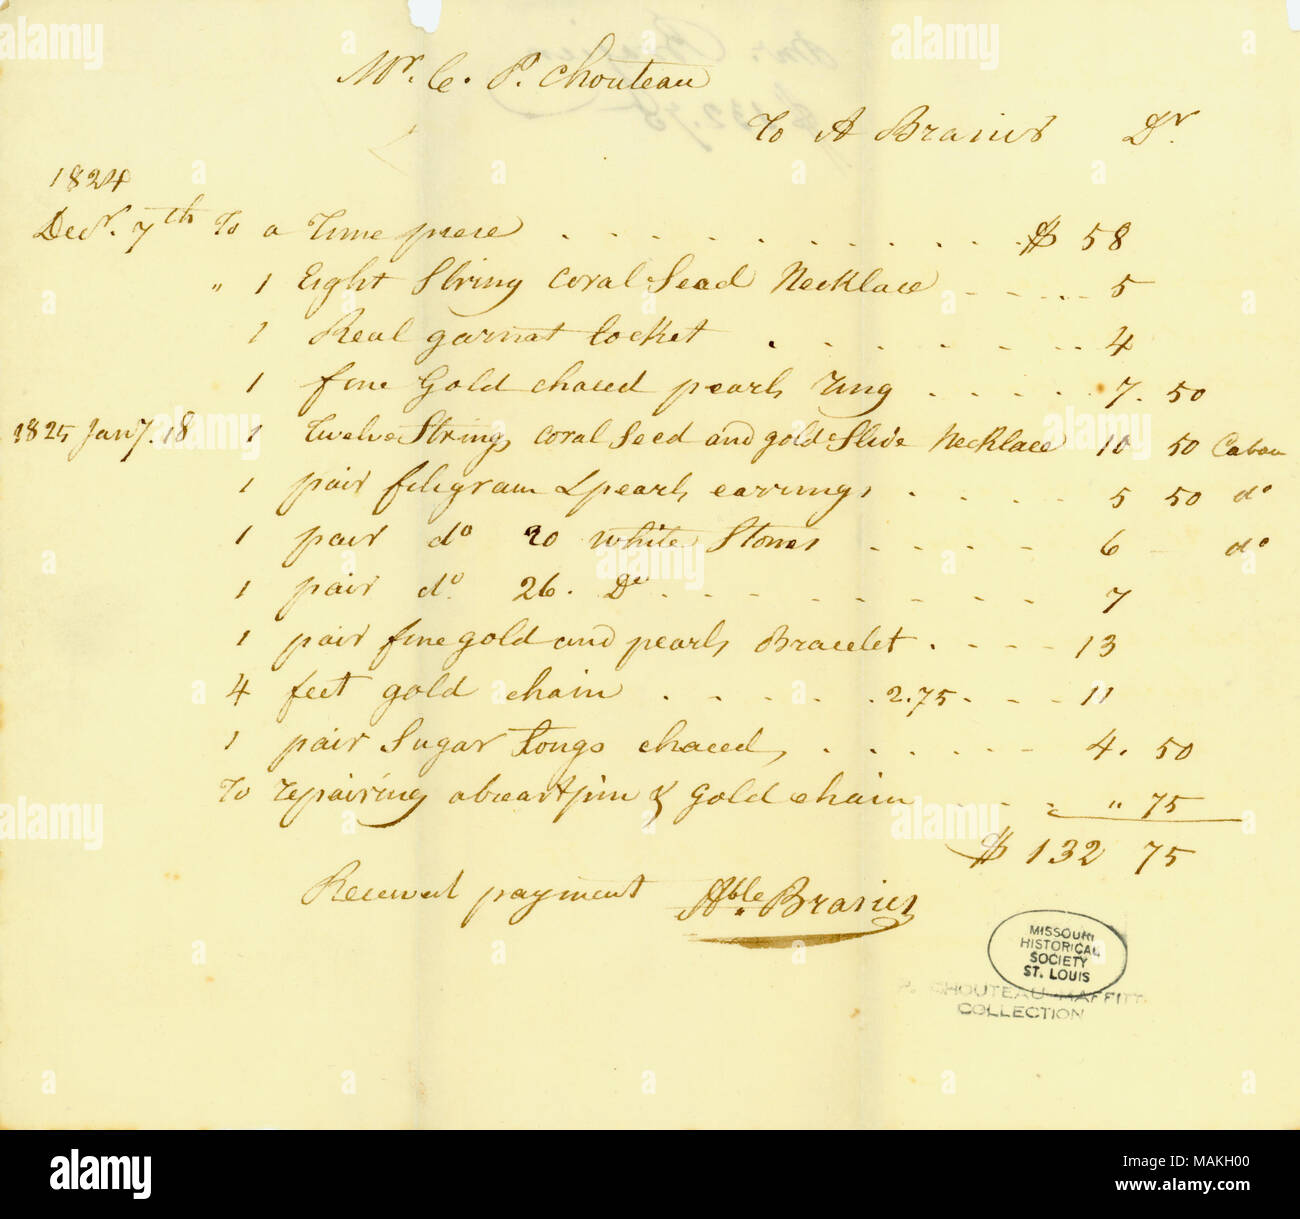 Mr. C. P. Chouteau
To A Brasier Dr.
1824
Decr. 7th To a Time piece $ 58
" 1 Eight String Coral Sead Necklace 5
1 Real garnat locket 4
1 fine Gold chaced pearls ring 7. 50
1825 Jany. 18 1 Twelve Strings coral Seed and gold Slide Necklace 10 50
1 pair filigram & pearls earrings 5 50 do
1 pair do 20 white Stones 6 - do
1 pair do. 26. Do 7
1 pair fine gold and pearls Bracelet 13
4 feet gold chain 2.75 11
1 pair Sugar tongs chaced, 4. 50
To repairing abreastpin & gold chain " 75
$ 132 75
Received payment Able Brasier
MISSOURI
HISTORICAL
SOCIETY
ST. LOUIS
P. CHOUTEAU MAFFITT
COLLECTION
alamy
Image ID: MAKH00
www.alamy.com